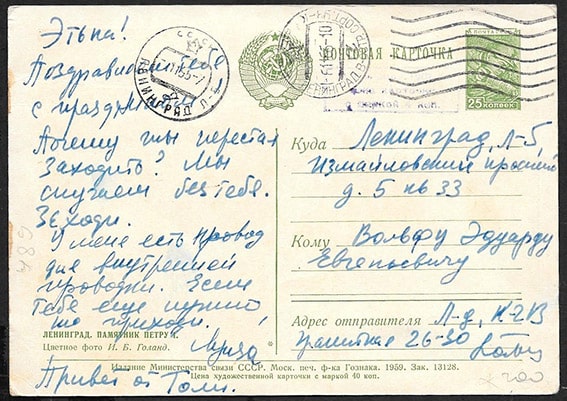 Этька!
Поздравляю тебя
с праздником
Почему ты перестал
заходить? Мы
скучаем без тебя.
Заходи.
У меня есть провод
для внутренней
проводки. Если
тебе ещё нужно
то приходи!
Муза
Привет от Толи.
ПОЧТОВАЯ КАРТОЧКА
ПОЧТА СССР
25 КОПЕЕК
ЛЕНИНГРАД
Куда Ленинград, Л-5,
Измайловский проспект
д. 5 кв 33
Кому Вольфу Эдуарду
Евгеньевичу
Адрес отправителя Л-д,
26-30
ЛЕНИНГРАД. ПАМЯТНИК ПЕТРУ I.
Цветное фото И. Б. Голанд.
Издание Министерства связи СССР. Моск. печ. ф-ка Гознака. 1959. Зак. 13128.
Цена художественной карточки с маркой 40 коп.
684
200